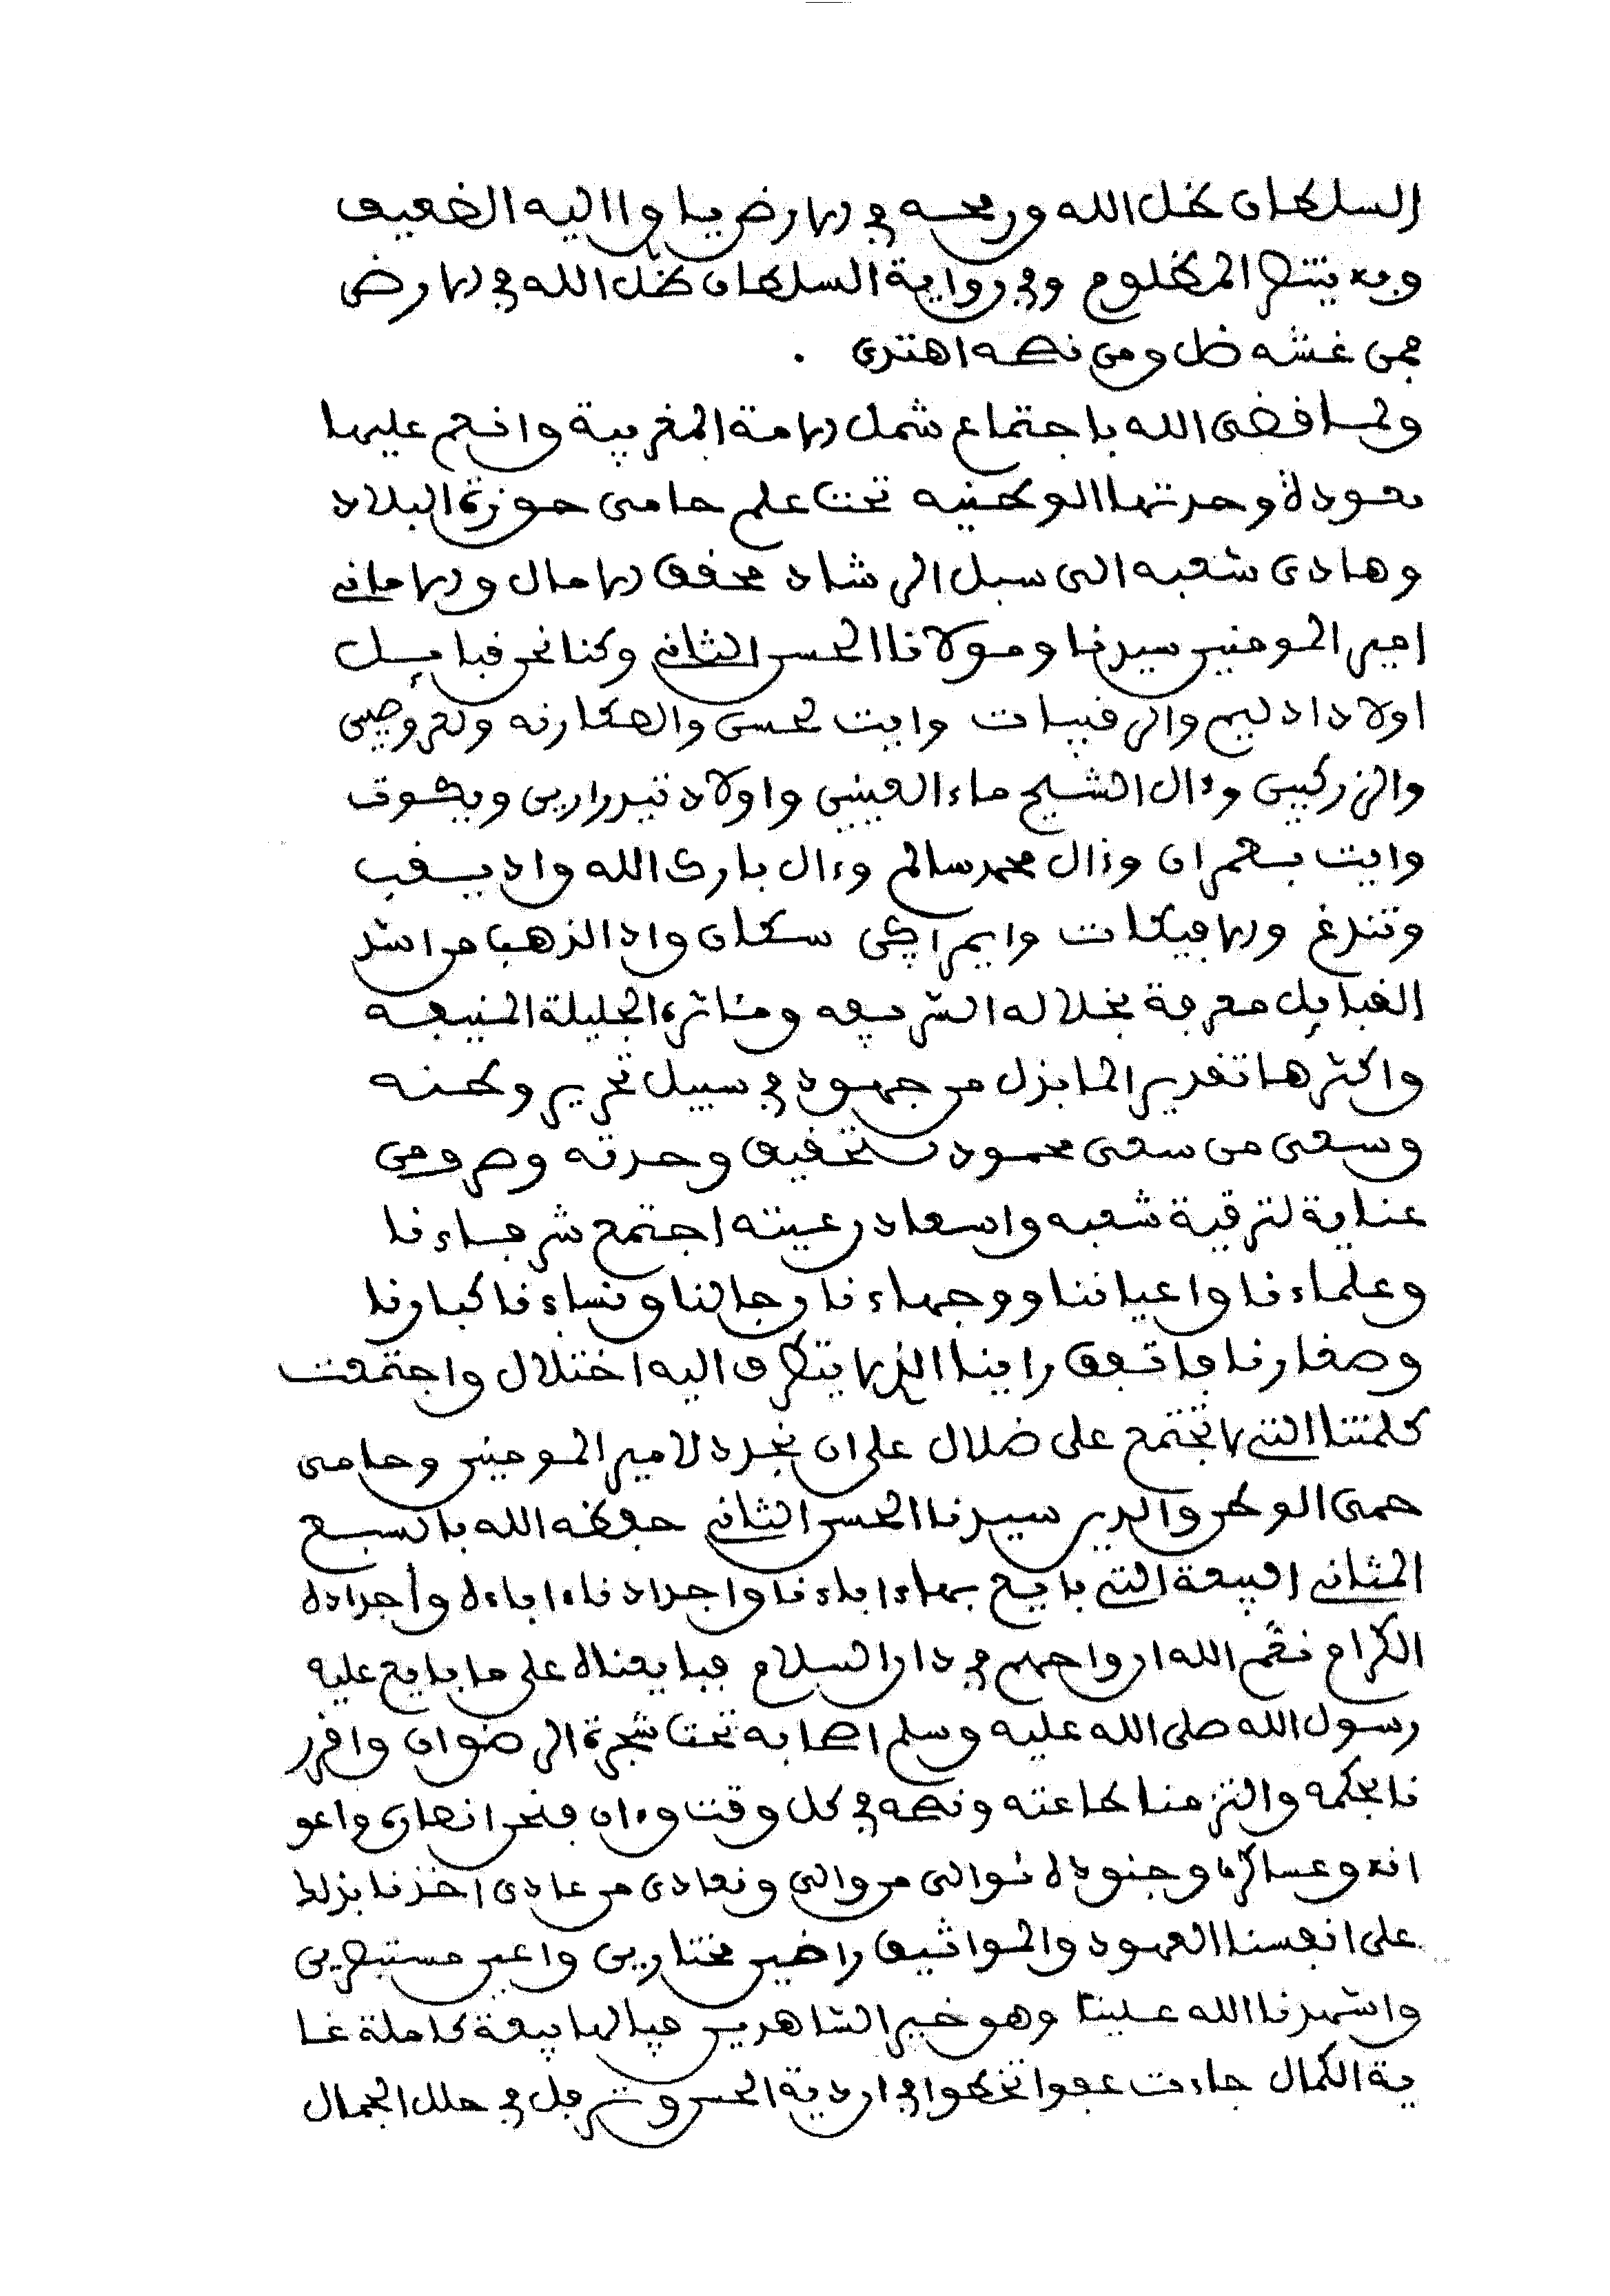 السلطان ظل الله ورمحه في الارض ياوا اليه الضعيف
وبه ينتصر المظلوم وفي رواية السلطان ظل الله في الارض
فمن غشه ضل ومن نصحه اهتدى .
ولما قضى الله باجتماع شمل الامة المغربية وانعم عليها
بعودة وحدتها الوطنيه تحت علم حامى حوزة البلاد
وهادى شعبه الى سبل الرشاد محقق الامال والاماني
امير المومنين سيدنا ومولانا الحسن الثاني وكنا نحن قبايل
اولاد ادليم والرقيبات وايت لحسن والعكارنه ولعروصيين
والزركيين وءال الشيخ ماء العينين واولاد تيدرارين ويكوت
وايت بعمران وءال محمد سالم وءال بارك الله واد يعقب
وتندغ والافيكات وايمراكن سكان واد الذهب من اشد
القبايل معرفة بخلاله الشريفه ومئاثره الجليلة المنيفه
واكثرها تقديرا لما بذل من جهود في سبيل تحرير وطنه
وسعى من سعى محمود لتحقيق وحدته وصرف من
عناية لترقية شعبه واسعاد رعيته اجتمع شرفاءنا
وعلماءنا واعياننا ووجهاءنا رجالنا ونساءنا كبارنا
وصغارنا فاتفق راينا الذي لا يتطرق اليه اختلال واجتمعت
كلمتنا التي لا تجتمع على ضلال على ان نجدد لامير المومنين وحامى
حمى الوطن والدين سيدنا الحسن الثاني حفظه الله بالسبع
المثاني البيعة التي بايع بها ءاباءنا واجدادنا ءاباءه وأجداده
الكرام نعّم الله ارواحهم في دار السلام فبايعناه على ما بايع عليه
رسول الله صلى الله عليه وسلم اصحابه تحت شجرة الرضوان واقرر
نا بحكمه والتزمنا طاعته ونصحه في كل وقت وءان فنحن انصاره واعو
انه وعساكره وجنوده نوالى من والى ونعادى من عادى اخذنا بذلك
على انفسنا العهود والمواثيق راضين مختارين واعين مستبصرين
واشهدنا الله علينا وهو خير الشاهدين فيا لها بيعة كاملة غا
ية الكمال جاءت عفوا تخطوا في اردية الحسن وترفل في حلل الجمال